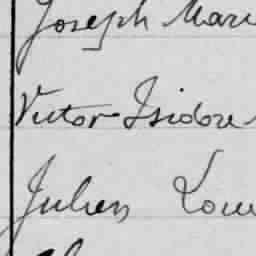 Joseph Mari
Victor Isidore
Julien Loui